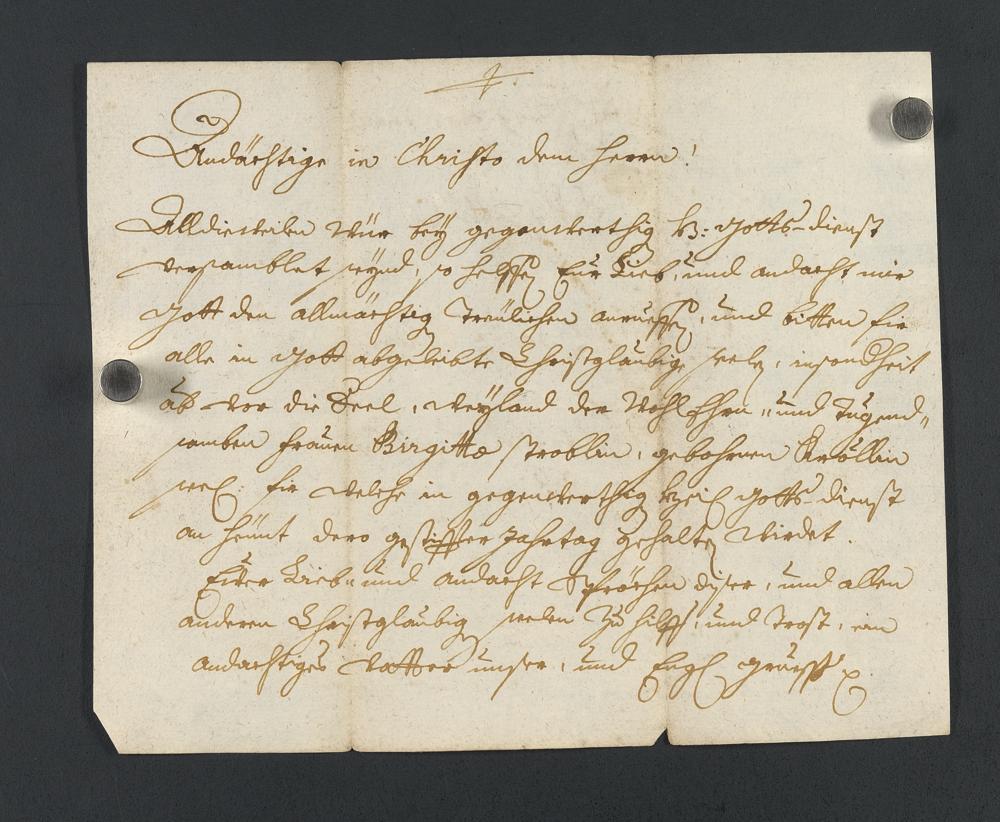 Andächtige in Christo dem Herrn!
Alldieweilen Wür beÿ gegenwerthig H: Gotts-dienst
versamblet seÿnd, so helffen Eur Lieb, und andacht mir
Gott den allmächtig Treülichen anrueffen, und bitten fir
alle in Gott abgeleibte Christglaubige seelen, insonderheit
ab vor die Seel, weÿland der WohlEhrn- und Tugend-
samben Frauen Birgitta Stroblin, gebohrnen Kröllin
seel: fir welche in gegenwerthig Gotts-dienst
an heünt dero gestiffter Jahrtag gehalten wirdet.
Euer Lieb- und andacht Sprächen diser, und allen
anderen Christglaubig seelen Zu hilff, und Trost, ein
andächtiges Vatter unser, und Engl: gruess